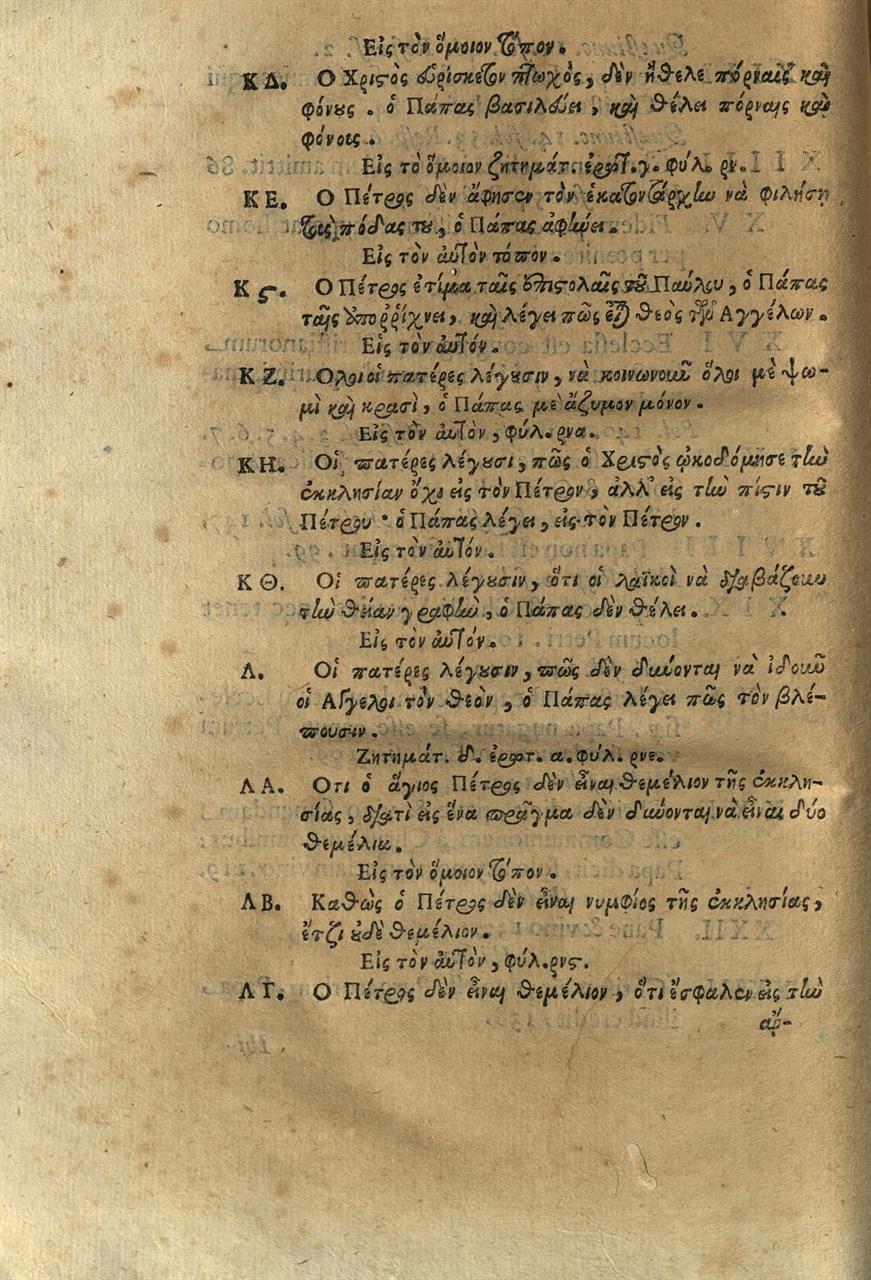 Εἰς τὸν ὅμοιον τόπον.
ΚΔ. Ο Χριστὸς εὑρίσκετον πτωχὸς, δὲν ἤθελε πόρναις καὶ
φόνους. ὁ Πάπας βασιλεύει, καὶ θέλει πόρναις καὶ
φόνοις.
Εἰς τὸ ὅμοιον ζητημάτ. ἐρωτ. γ. φύλ. ρν.
ΚΕ. Ο Πέτρος δὲν ἄφησεν τὸν ἑκατοντάρχην νὰ φιλήσῃ
τοὺς πόδας του, ὁ Πάπας ἀφίνει.
Εἰς τὸν αὐτὸν τόπον.
Κϛ. Ο Πέτρος ἐτίμα ταῖς ἐπιστολαῖς τοῦ Παύλου, ὁ Πάπας
ταῖς ἀπορρίχνει, καὶ λέγει πῶς εἶναι θεὸς τῶν Αγγέλων.
Εἰς τὸν αὐτόν.
ΚΖ. Ολοι οἱ πατέρες λέγουσιν, νὰ κοινωνοῦν ὅλοι μὲ ψω-
μὶ καὶ κρασὶ, ὁ Πάπας με ἄζυμον μόνον.
Εἰς τὸν αὐτὸν, φύλ. ρνα.
ΚΗ. Οἱ πατέρες λέγουσι, πῶς ὁ Χριστὸς ᾠκοδόμησε τὴν
ἐκκλησίαν ὄχι εἰς τὸν Πέτρον, ἀλλ' εἰς τὴν πίστιν τοῦ
Πέτρου· ὁ Πάπας λέγει, εἰς τὸν Πέτρον.
Εἰς τὸν αὐτόν.
ΚΘ. Οἱ πατέρες λέγουσιν, ὅτι οἱ λαϊκοὶ νὰ διαβάζουν
τὴν θείαν γραφὴν, ὁ Πάπας δὲν θέλει.
Εἰς τὸν αὐτόν.
Λ. Οἱ πατέρες λέγουσιν, πῶς δὲν δύνονται νὰ ἰδοῦν
οἱ Αγγελοι τὸν θεὸν, ὁ Πάπας λέγει πῶς τὸν βλέ-
πουσιν.
Ζητημάτ. δ. ἐρωτ. α. φύλ. ρνε.
ΛΑ. Οτι ὁ ἅγιος Πέτρος δὲν εἶναι θεμέλιον τῆς ἐκκλη-
σίας, διατὶ εἰς ἕνα πρᾶγμα δὲν δύνονται νὰ εἶναι δύο
θεμέλια.
Εἰς τὸν ὅμοιον τόπον.
ΛΒ. Καθὼς ὁ Πέτρος δὲν εἶναι νυμφίος τῆς ἐκκλησίας,
ἔτζι οὐδὲ θεμέλιον.
Εἰς τὸν αὐτὸν, φύλ. ρνϛ.
ΛΓ. Ο Πέτρος δὲν εἶναι θεμέλιον, ὅτι ἔσφαλεν εἰς τὴν
αρ-